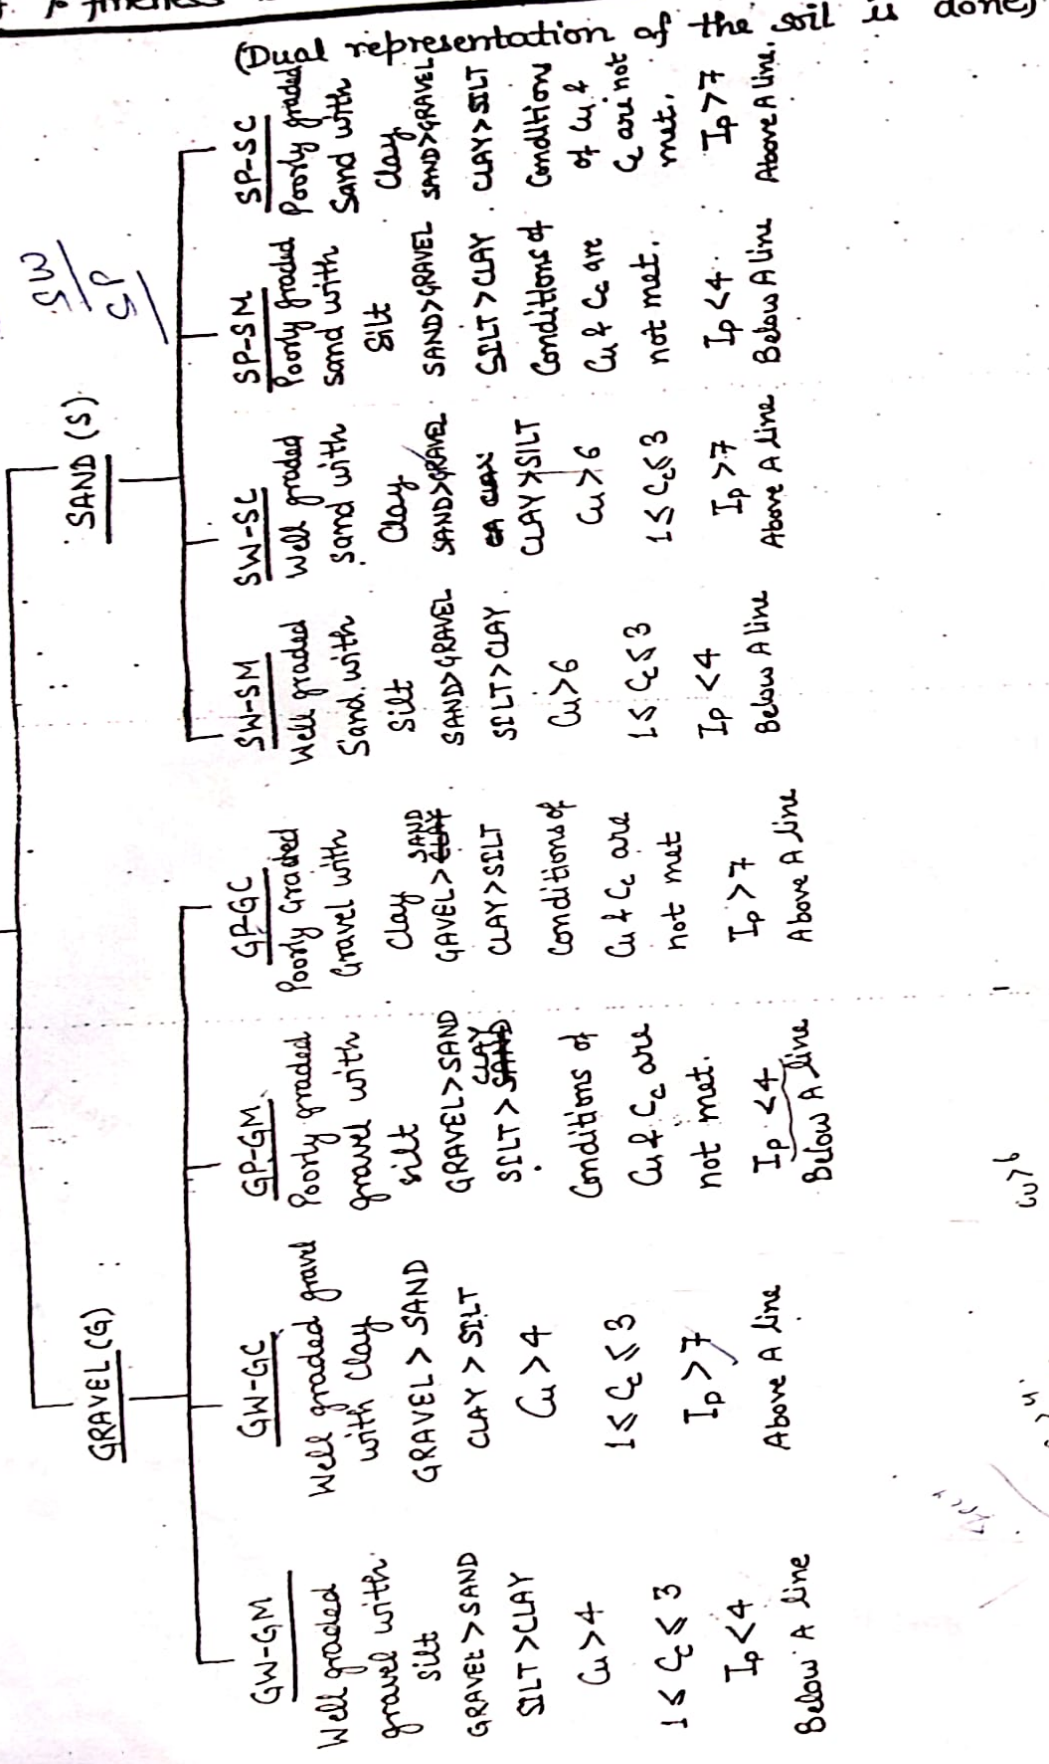 (Dual representation of the soil is done)
GRAVEL (G)
SAND (S)
SW
SP
GW-GM
Well graded
gravel with
silt
GRAVEL > SAND
SILT > CLAY
Cu > 4
1 ≤ Cc ≤ 3
Ip < 4
Below A line
GW-GC
Well graded gravel
with Clay
GRAVEL > SAND
CLAY > SILT
Cu > 4
1 ≤ Cc ≤ 3
Ip > 7
Above A line
GP-GM
Poorly graded
gravel with
silt
GRAVEL > SAND
SILT > CLAY
Conditions of
Cu & Cc are
not met.
Ip < 4
Below A line
GP-GC
Poorly Graded
Gravel with
Clay
GAVEL > SAND
CLAY > SILT
Conditions of
Cu & Cc are
not met
Ip > 7
Above A line
SW-SM
Well graded
Sand with
Silt
SAND > GRAVEL
SILT > CLAY.
Cu > 6
1 ≤ Cc ≤ 3
Ip < 4
Below A line
SW-SC
Well graded
sand with
Clay
SAND > GRAVEL
CLAY > SILT
Cu > 6
1 ≤ Cc ≤ 3
Ip > 7
Above A line
SP-SM
Poorly graded
sand with
Silt
SAND > GRAVEL
SILT > CLAY
Conditions of
Cu & Cc are
not met.
Ip < 4
Below A line
SP-SC
Poorly graded
Sand with
Clay
SAND > GRAVEL
CLAY > SILT
Condition
of Cu &
Cc are not
met.
Ip > 7
Above A line.
Cu > 6